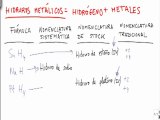 HIDRUROS METÁLICOS = HIDRÓGENO + METALES
FÓRMULA NOMENCLATURA SISTEMÁTICA NOMENCLATURA DE STOCK NOMENCLATURA TRADICIONAL
Sn H₄ Hidruro de estaño (IV)
Na H Hidruro de sodio
Pt H Hidruro de platino